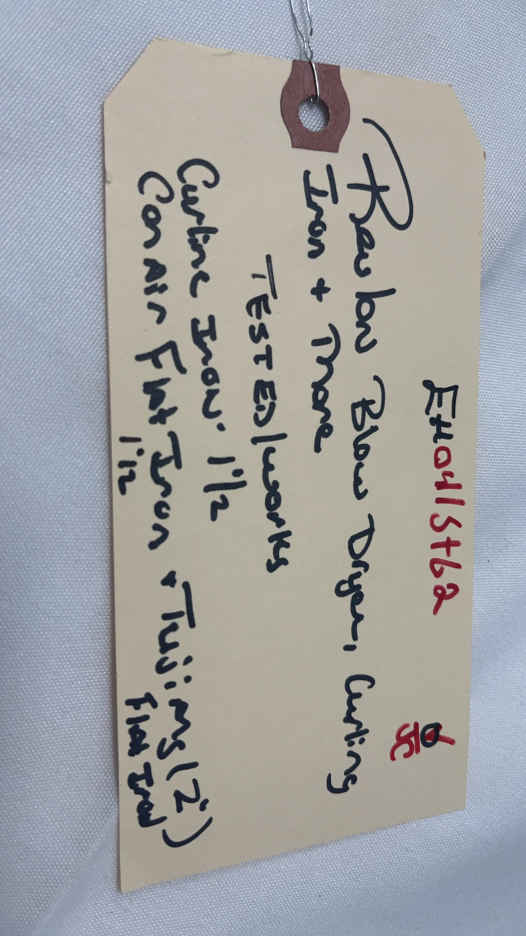 EH0415+62
JC
Revlon Blow Dryer, Curling
Iron + More
TESTED/works
Curling Iron 1 1/2
Conair Flat Iron + Tujimsi (2")
1 1/2 Flat Iron